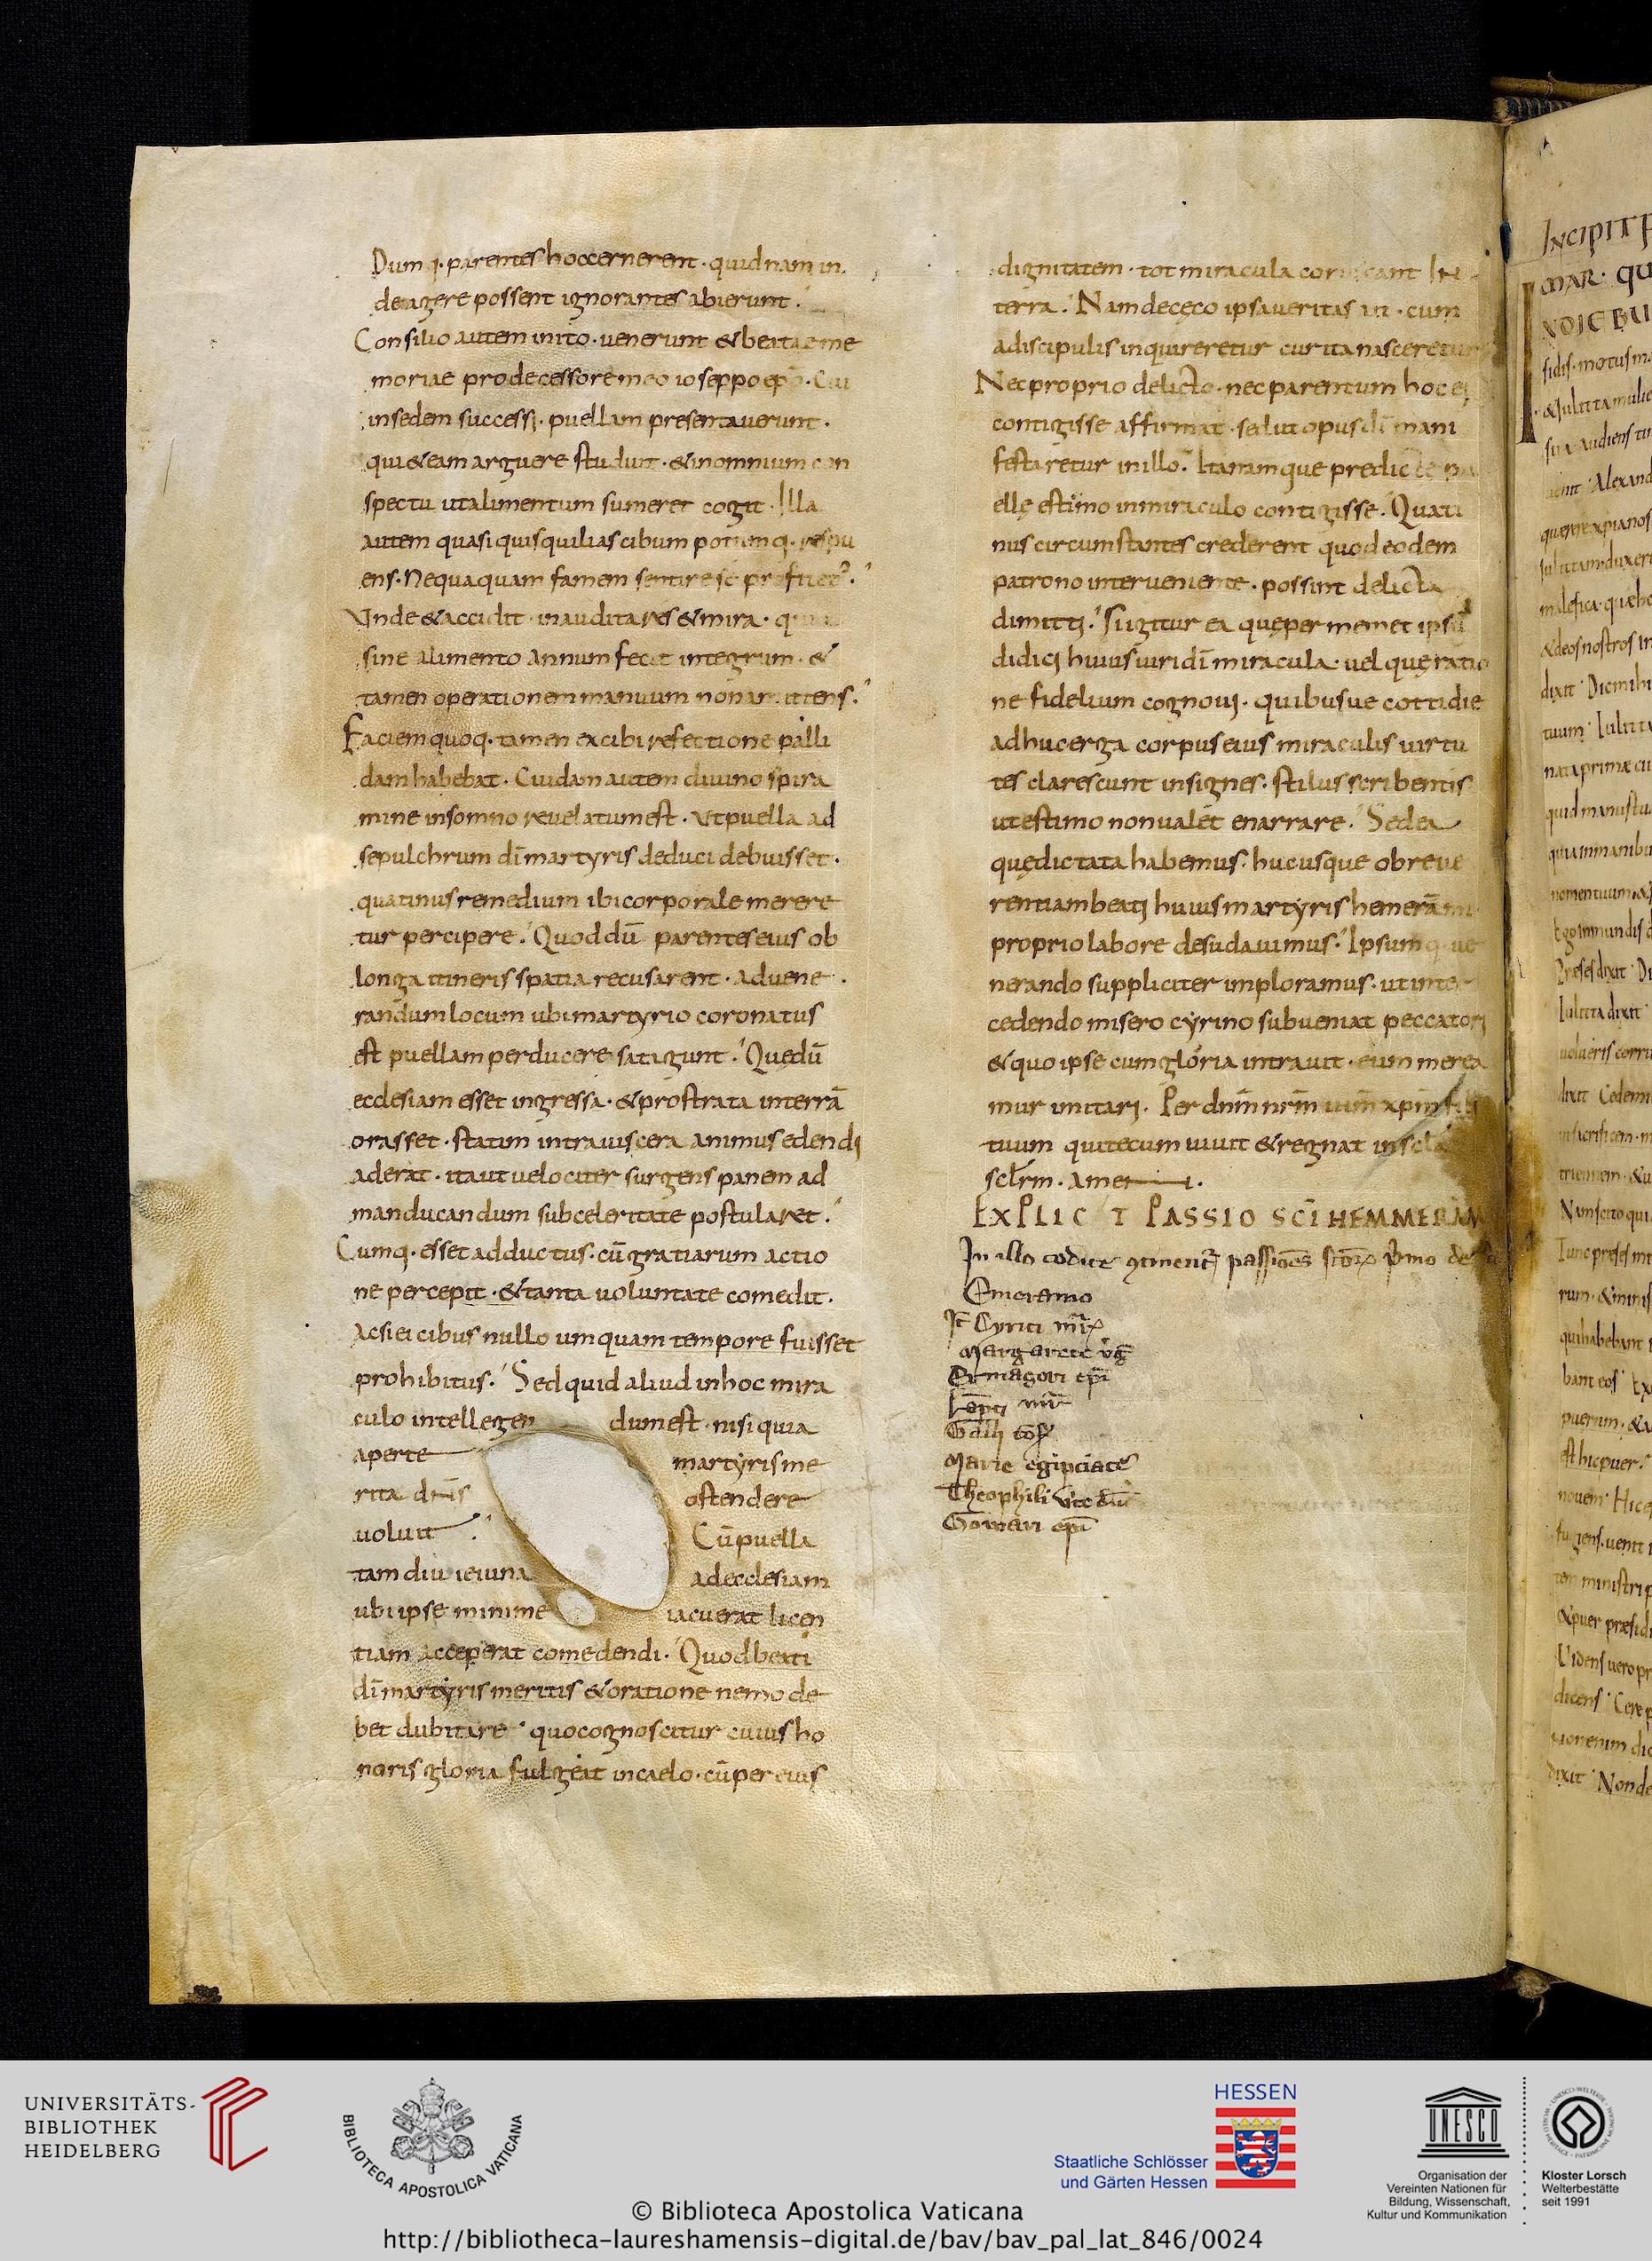 Dumq· parentes hoc cernerent · quidnam in
de agere possent ignorantes abierunt .
Consilio autem inito · uenerunt & beatae me
moriae prodecessore meo ioseppo ep̄o · Cui
in sedem successi · puellam presentauerunt ·
qui & eam arguere studuit · & in omnium con
spectu ut alimentum sumeret cogit · Illa
autem quasi quisquilias cibum potumq· respu
ens · Nequaquam famem sentire se
Vnde & accidit · inaudita res & mira ·
sine alimento annum fecit integrum · &
tamen operationem manuum non amittens .
Faciem quoq· tamen ex cibi refectione palli
dam habebat · Cuidam autem diuino spira
mine in somno reuelatum est · Vt puella ad
sepulchrum dī martyris deduci debuisset ·
quatinus remedium ibi corporale merere
tur percipere . Quod dū parentes eius ob
longa itineris spatia recusarent · ad uene
randum locum ubi martyrio coronatus
est puellam perducere satigunt . Quę dū
ecclesiam esset ingressa · & prostrata in terrā
orasset · statim intra uiscera animus edendi
aderat · ita ut uelociter surgens panem ad
manducandum sub celeritate postularet .
Cumq· esset adductus · cū gratiarum actio
ne percepit · & tanta uoluntate comedit ·
Ac si ei cibus nullo umquam tempore fuisset
prohibitus . Sed quid aliud in hoc mira
culo intellegen dum est · nisi quia
aperte martyris me
rita dn̄s ostendere
uoluit . Cū puella
tam diu ieiuna ad ecclesiam
ubi ipse minime iacuerat licen
tiam acceperat comedendi · Quod beati
dī martyris meritis & oratione nemo de
bet dubitare · quo cognoscitur cuius ho
noris gloria fulgeat in caelo · cū per eius
dignitatem · tot miracula coruscant In
terra . Nam de cęco ipsa ueritas · cum
a discipulis inquireretur cur ita nasceretur
Nec proprio delicto · nec parentum hoc ei
contigisse affirmat · sed ut opus dī mani
festaretur in illo . Itanamque predictę pu
ellę estimo in miraculo contigisse . Quati
nus circumstantes crederent quod eodem
patrono interueniente · possint delicta
dimitti . Si igitur ea quę per memet ipsū
didici huius uiri dī miracula · uel quę ratio
ne fidelium cognoui · quibusue cottidie
adhuc erga corpus eius miraculis uirtu
tes clarescunt insignes · stilus scribentis
ut estimo non ualet enarrare . Sed ea
quę dictata habemus · hucusque ob reue
rentiam beati huius martyris hemerāmi
proprio labore desudauimus . Ipsumq· ue
nerando suppliciter imploramus · ut inter
cedendo misero cyrino subueniat peccatori
& quo ipse cum gloria intrauit · eum merea
mur imitari · Per dn̄m nr̄m ihm̄ xpm̄ filiū
tuum qui tecum uiuit & regnat in scl̄a
scl̄rm · amen .
EXPLICIT PASSIO SCĪ HEMMERAMI
In illo codice ɔtinent᷑ passiones sctōꝝ p̄mo de s̄cō
Emeramo
It̄ Cyrici mr̄ꝝ
Margarete v̄g̅
Ermagori ep̄i
mr̄
Galli
Marie egipciace
Theophili
Goaris ep̄i
INCIPIT P
MAR · QU
UNIVERSITÄTS-
BIBLIOTHEK
HEIDELBERG
BIBLIOTECA APOSTOLICA VATICANA
HESSEN
Staatliche Schlösser
und Gärten Hessen
UNESCO
Organisation der
Vereinten Nationen für
Bildung, Wissenschaft,
Kultur und Kommunikation
Kloster Lorsch
Welterbestätte
seit 1991
© Biblioteca Apostolica Vaticana
http://bibliotheca-laureshamensis-digital.de/bav/bav_pal_lat_846/0024